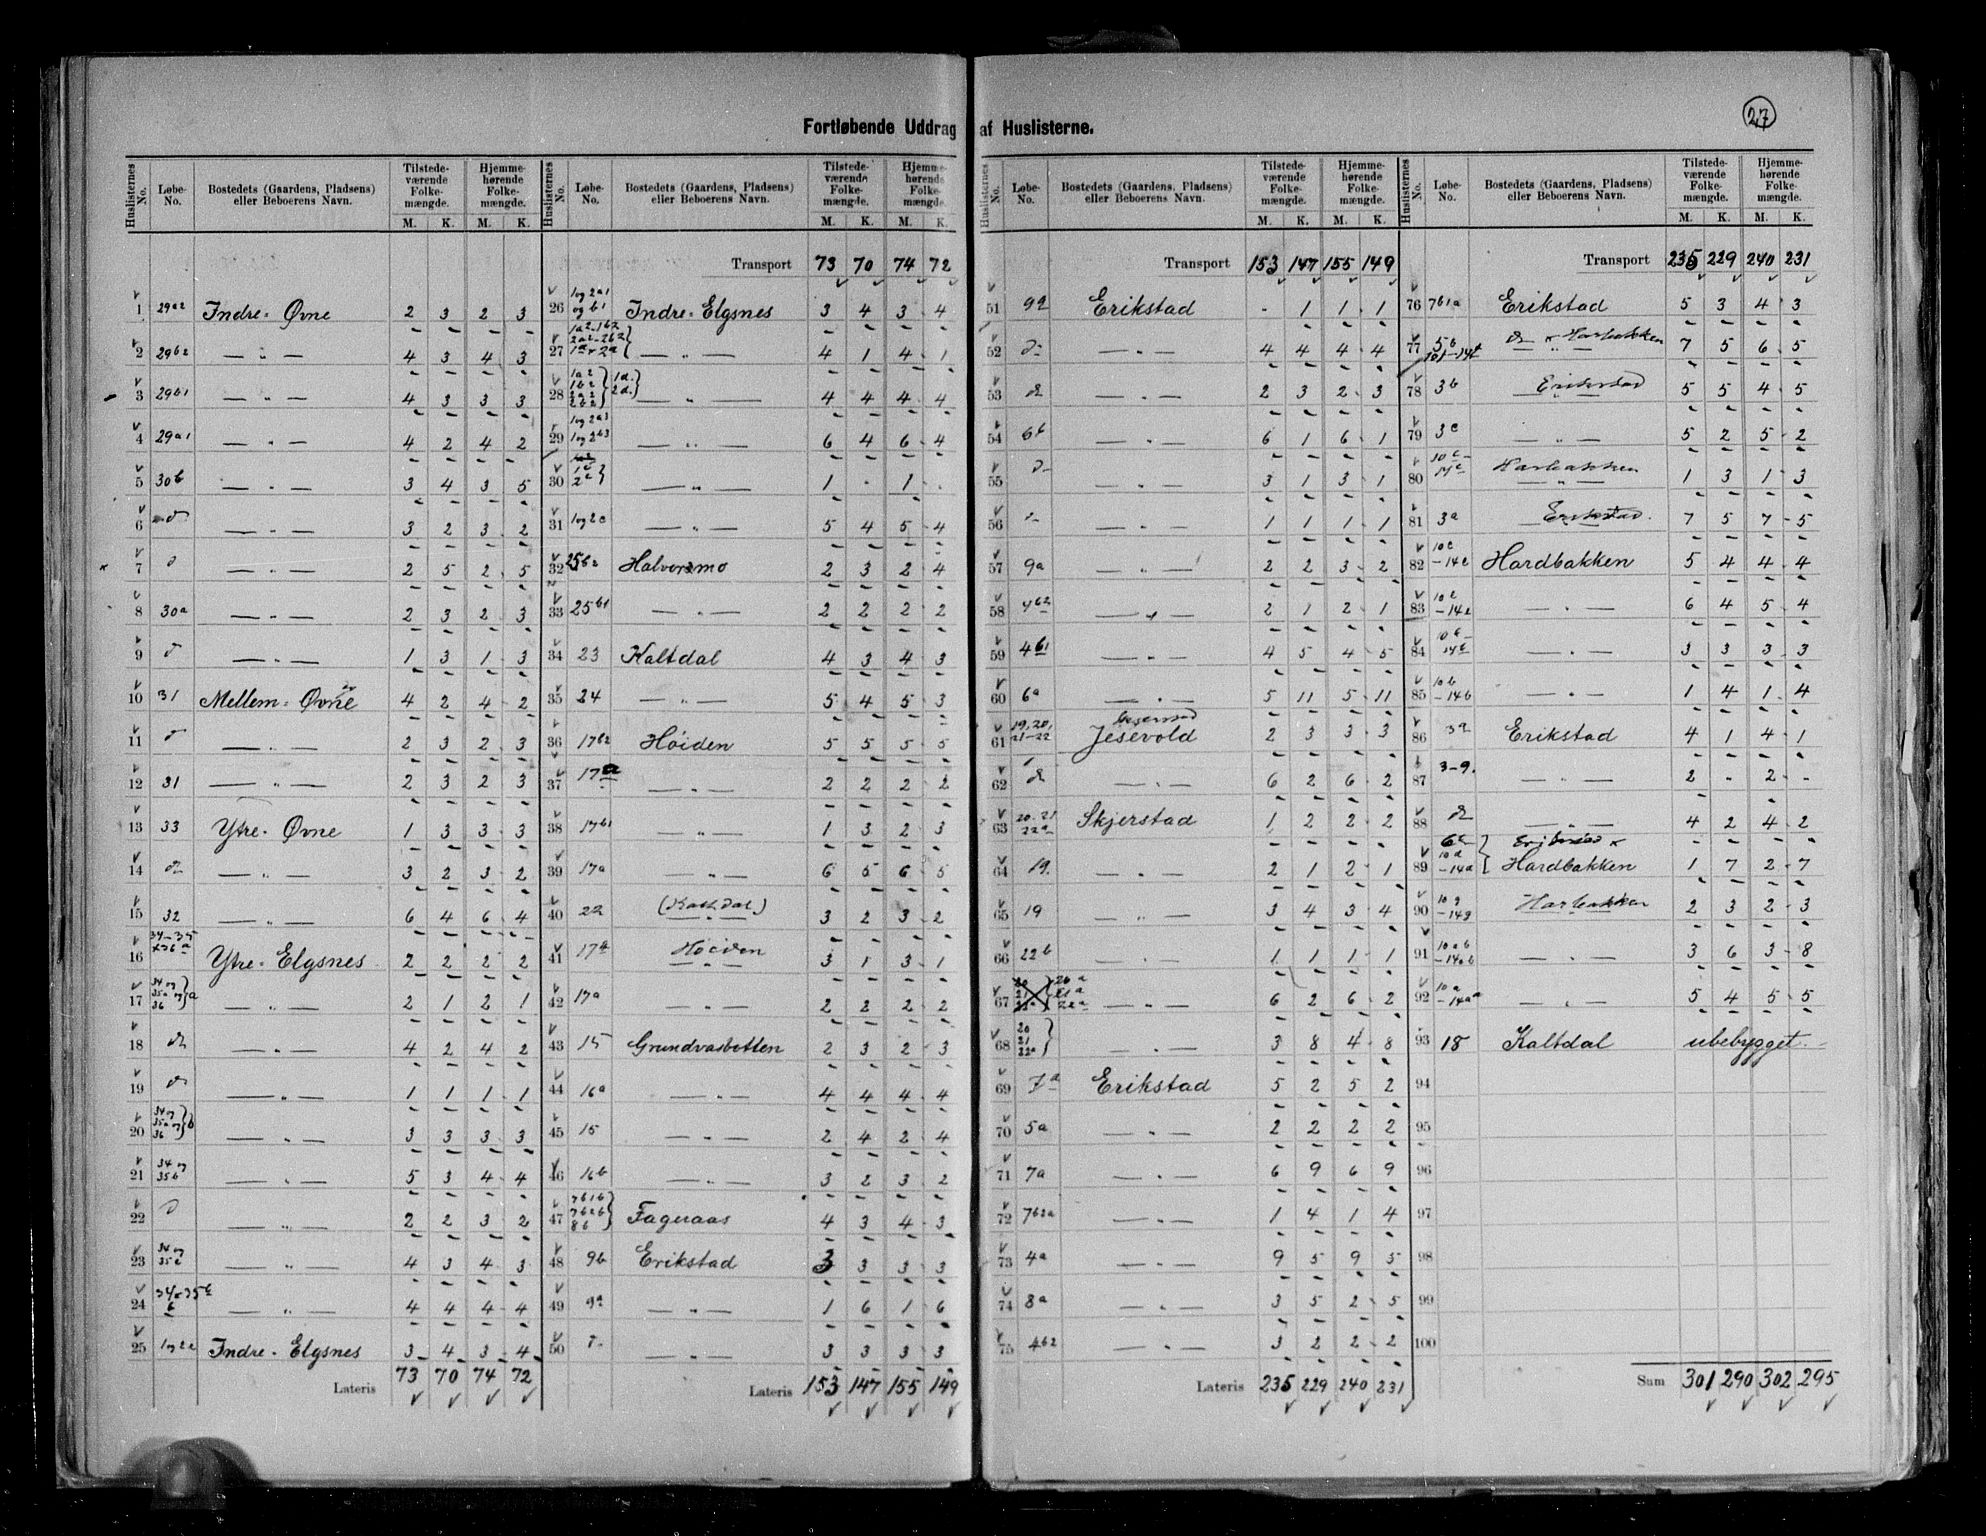 27
Fortløbende Uddrag af Huslisterne.
Huslisternes No. Løbe-No. Bostedets (Gaardens, Pladsens) eller Beboerens Navn. Tilstedeværende Folkemængde. M. K. Hjemmehørende Folkemængde. M. K.
1 29a2 Indre-Øvne 2 3 2 3
2 29b2 — " — 4 3 4 3
3 29b1 — " — 4 3 3 3
4 29a1 — " — 4 2 4 2
5 30b — " — 3 4 3 5
6 — " — 3 2 3 2
7 — " — 2 5 2 5
8 30a — " — 2 3 2 3
9 — " — 1 3 1 3
10 31 Mellem-Øvne 4 2 4 2
11 — " — 2 3 2 3
12 31 — " — 2 3 2 3
13 33 Ytre-Øvne 1 3 3 3
14 — " — 3 2 3 2
15 32 — " — 6 4 6 4
16 34-35 x36a Ytre-Elgsnes 2 2 2 2
17 34 og 35a og 36 } a — " — 2 1 2 1
18 — " — 4 2 4 2
19 — " — 1 1 1 1
20 34 og 35a og 36 } b — " — 3 3 3 3
21 34 og 35b — " — 5 3 4 4
22 — " — 2 2 3 2
23 34 og 35c — " — 4 3 4 3
24 — " — 4 4 4 4
25 1og2e Indre-Elgsnes 3 4 3 4
Lateris 73 70 74 72
Huslisternes No. Løbe-No. Bostedets (Gaardens, Pladsens) eller Beboerens Navn. Tilstedeværende Folkemængde. M. K. Hjemmehørende Folkemængde. M. K.
Transport 73 70 74 72
26 1og2a1 og b1 Indre-Elgsnes 3 4 3 4
27 1a2-1b2 2a2-2b2 — " — 4 1 4 1
28 1a2 1b2 2a2 2b2 } 1d. 2d. — " — 4 4 4 4
29 1og2a3 1og2b3 — " — 6 4 6 4
30 1c 2c } — " — 1 . 1 .
31 1og2e — " — 5 4 5 4
32 25b2 Halvorsmo 2 3 2 4
33 25b1 — " — 2 2 2 2
34 23 Kaltdal 4 3 4 3
35 24 — " — 5 4 5 3
36 17b2 Høiden 5 5 5 5
37 17a — " — 2 2 2 2
38 17b1 — " — 1 3 2 3
39 17a — " — 6 5 6 5
40 22 (Kaltdal) — " — 3 2 3 2
41 17a Høiden — " — 3 1 3 1
42 17a — " — 2 2 2 2
43 15 Grundvasbotten 2 3 2 3
44 16a — " — 4 4 4 4
45 15 — " — 2 4 2 4
46 16b — " — 3 2 3 2
47 7b1b 7b2b 8b } Fageraas 4 3 4 3
48 9b Erikstad 3 3 3 3
49 9a — " — 1 6 1 6
50 — " — 3 3 3 3
Lateris 153 147 155 149
Huslisternes No. Løbe-No. Bostedets (Gaardens, Pladsens) eller Beboerens Navn. Tilstedeværende Folkemængde. M. K. Hjemmehørende Folkemængde. M. K.
Transport 153 147 155 149
51 9a Erikstad - 1 1 1
52 — " — 4 4 4 4
53 — " — 2 3 2 3
54 6b — " — 6 1 6 1
55 — " — 3 1 3 1
56 — " — 1 1 1 1
57 9a — " — 2 2 3 2
58 4b2 — " — 2 1 2 1
59 4b1 — " — 4 5 4 5
60 6a — " — 5 11 5 11
61 19, 20, 21-22 Jesevold 2 3 3 3
62 — " — 6 2 6 2
63 20-21 22a Skjerstad 1 2 2 2
64 19. — " — 2 1 2 1
65 19 — " — 3 4 3 4
66 22b — " — 1 1 1 1
67 20a 21a 22a — " — 6 2 6 2
68 20 21 22a } — " — 3 8 4 8
69 7a Erikstad 5 2 5 2
70 5a — " — 2 2 2 2
71 7a — " — 6 9 6 9
72 7b2a — " — 1 4 1 4
73 4a — " — 9 5 9 5
74 8a — " — 3 5 2 5
75 4b2 — " — 3 2 2 2
Lateris 235 229 240 231
Huslisternes No. Løbe-No. Bostedets (Gaardens, Pladsens) eller Beboerens Navn. Tilstedeværende Folkemængde. M. K. Hjemmehørende Folkemængde. M. K.
Transport 235 229 240 231
76 7b1a Erikstad 5 3 4 3
77 5b Harbakken — " — 7 5 6 5
78 3b Erikstad — " — 5 5 4 5
79 3c — " — 5 2 5 2
80 10c-14c Harbakken — " — 1 3 1 3
81 3a Erikstad. 7 5 7 5
82 10e-14e Hardbakken 5 4 4 4
83 10e-14e — " — 6 4 5 4
84 10c-14c — " — 3 3 3 3
85 10b-14b — " — 1 4 1 4
86 3a Erikstad 4 1 4 1
87 3-9. — " — 2 - 2 -
88 — " — 4 2 4 2
89 6c 10d-14a Erikstad x Hardbakken 1 7 2 7
90 10g-14g Harbakken — " — 2 3 2 3
91 10ab-14ab 3 6 3 8
92 10a-14a — " — 5 4 5 5
93 18 Kaltdal ubebygget
94
95
96
97
98
99
100
Sum 301 290 302 295